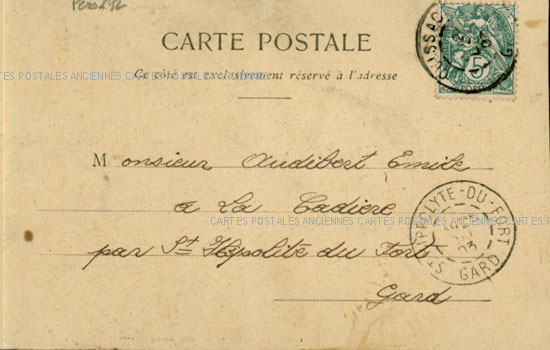 Pers 292
CARTE POSTALE
Ce côté est exclusivement réservé à l'adresse
CARTES POSTALES ANCIENNES CARTES POSTALES ANCIENNES CARTES POSTALES ANCIENNES
QUISSAC
5
Monsieur Audibert Emile
a La Cadiere
CARTES POSTALES ANCIENNES CARTES POSTALES ANCIENNES
par St Hypolite du Fort
Gard
ST HIPPOLYTE-DU-FORT
03
GARD